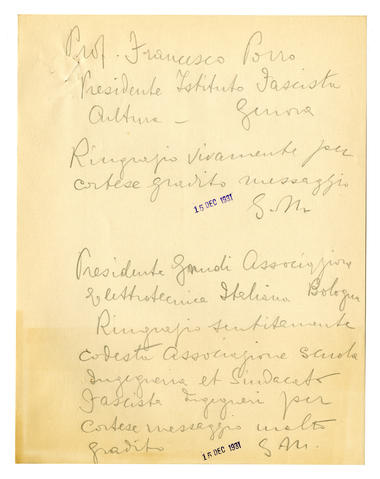 Prof. Francesco Porro
Presidente Istituto Fascista
Cultura - Genova
Ringrazio vivamente per
cortese gradito messaggio
15 DEC 1931
G. M.
Presidente Associazione
Elettrotecnica Italiana Bologna
Ringrazio sentitamente
codesta Associazione Scuola
Ingegneria et Sindacato
Fascista Ingegneri per
cortese messaggio molto
gradito
15 DEC 1931
G. M.